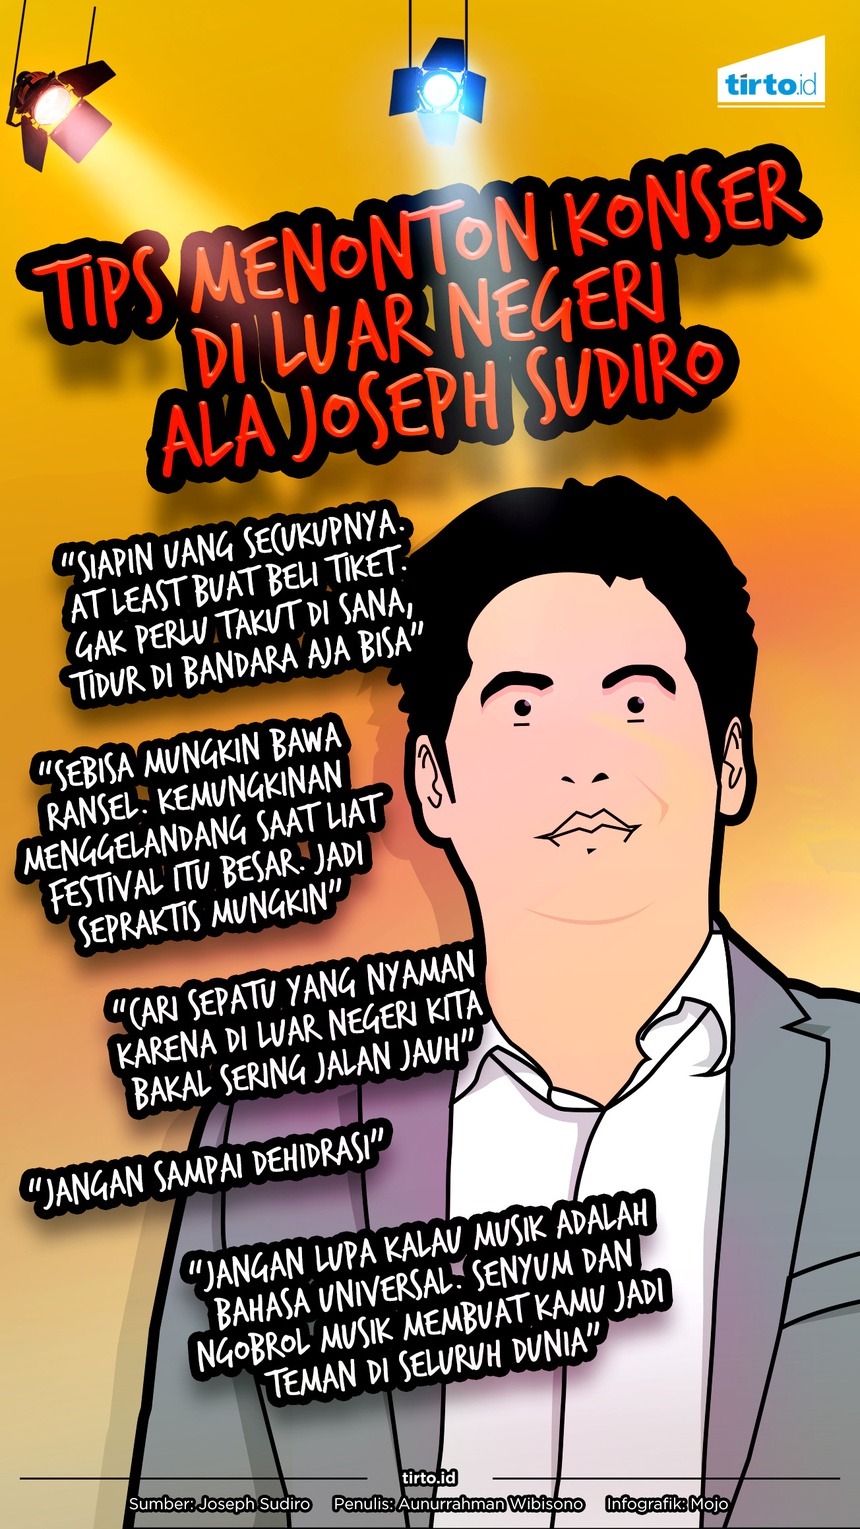 tirto.id
TIPS MENONTON KONSER
DI LUAR NEGERI
ALA JOSEPH SUDIRO
"SIAPIN UANG SECUKUPNYA.
AT LEAST BUAT BELI TIKET.
GAK PERLU TAKUT DI SANA,
TIDUR DI BANDARA AJA BISA"
"SEBISA MUNGKIN BAWA
RANSEL. KEMUNGKINAN
MENGGELANDANG SAAT LIAT
FESTIVAL ITU BESAR. JADI
SEPRAKTIS MUNGKIN"
"CARI SEPATU YANG NYAMAN
KARENA DI LUAR NEGERI KITA
BAKAL SERING JALAN JAUH"
"JANGAN SAMPAI DEHIDRASI"
"JANGAN LUPA KALAU MUSIK ADALAH
BAHASA UNIVERSAL. SENYUM DAN
NGOBROL MUSIK MEMBUAT KAMU JADI
TEMAN DI SELURUH DUNIA"
tirto.id
Sumber: Joseph Sudiro Penulis: Aunurrahman Wibisono Infografik: Mojo